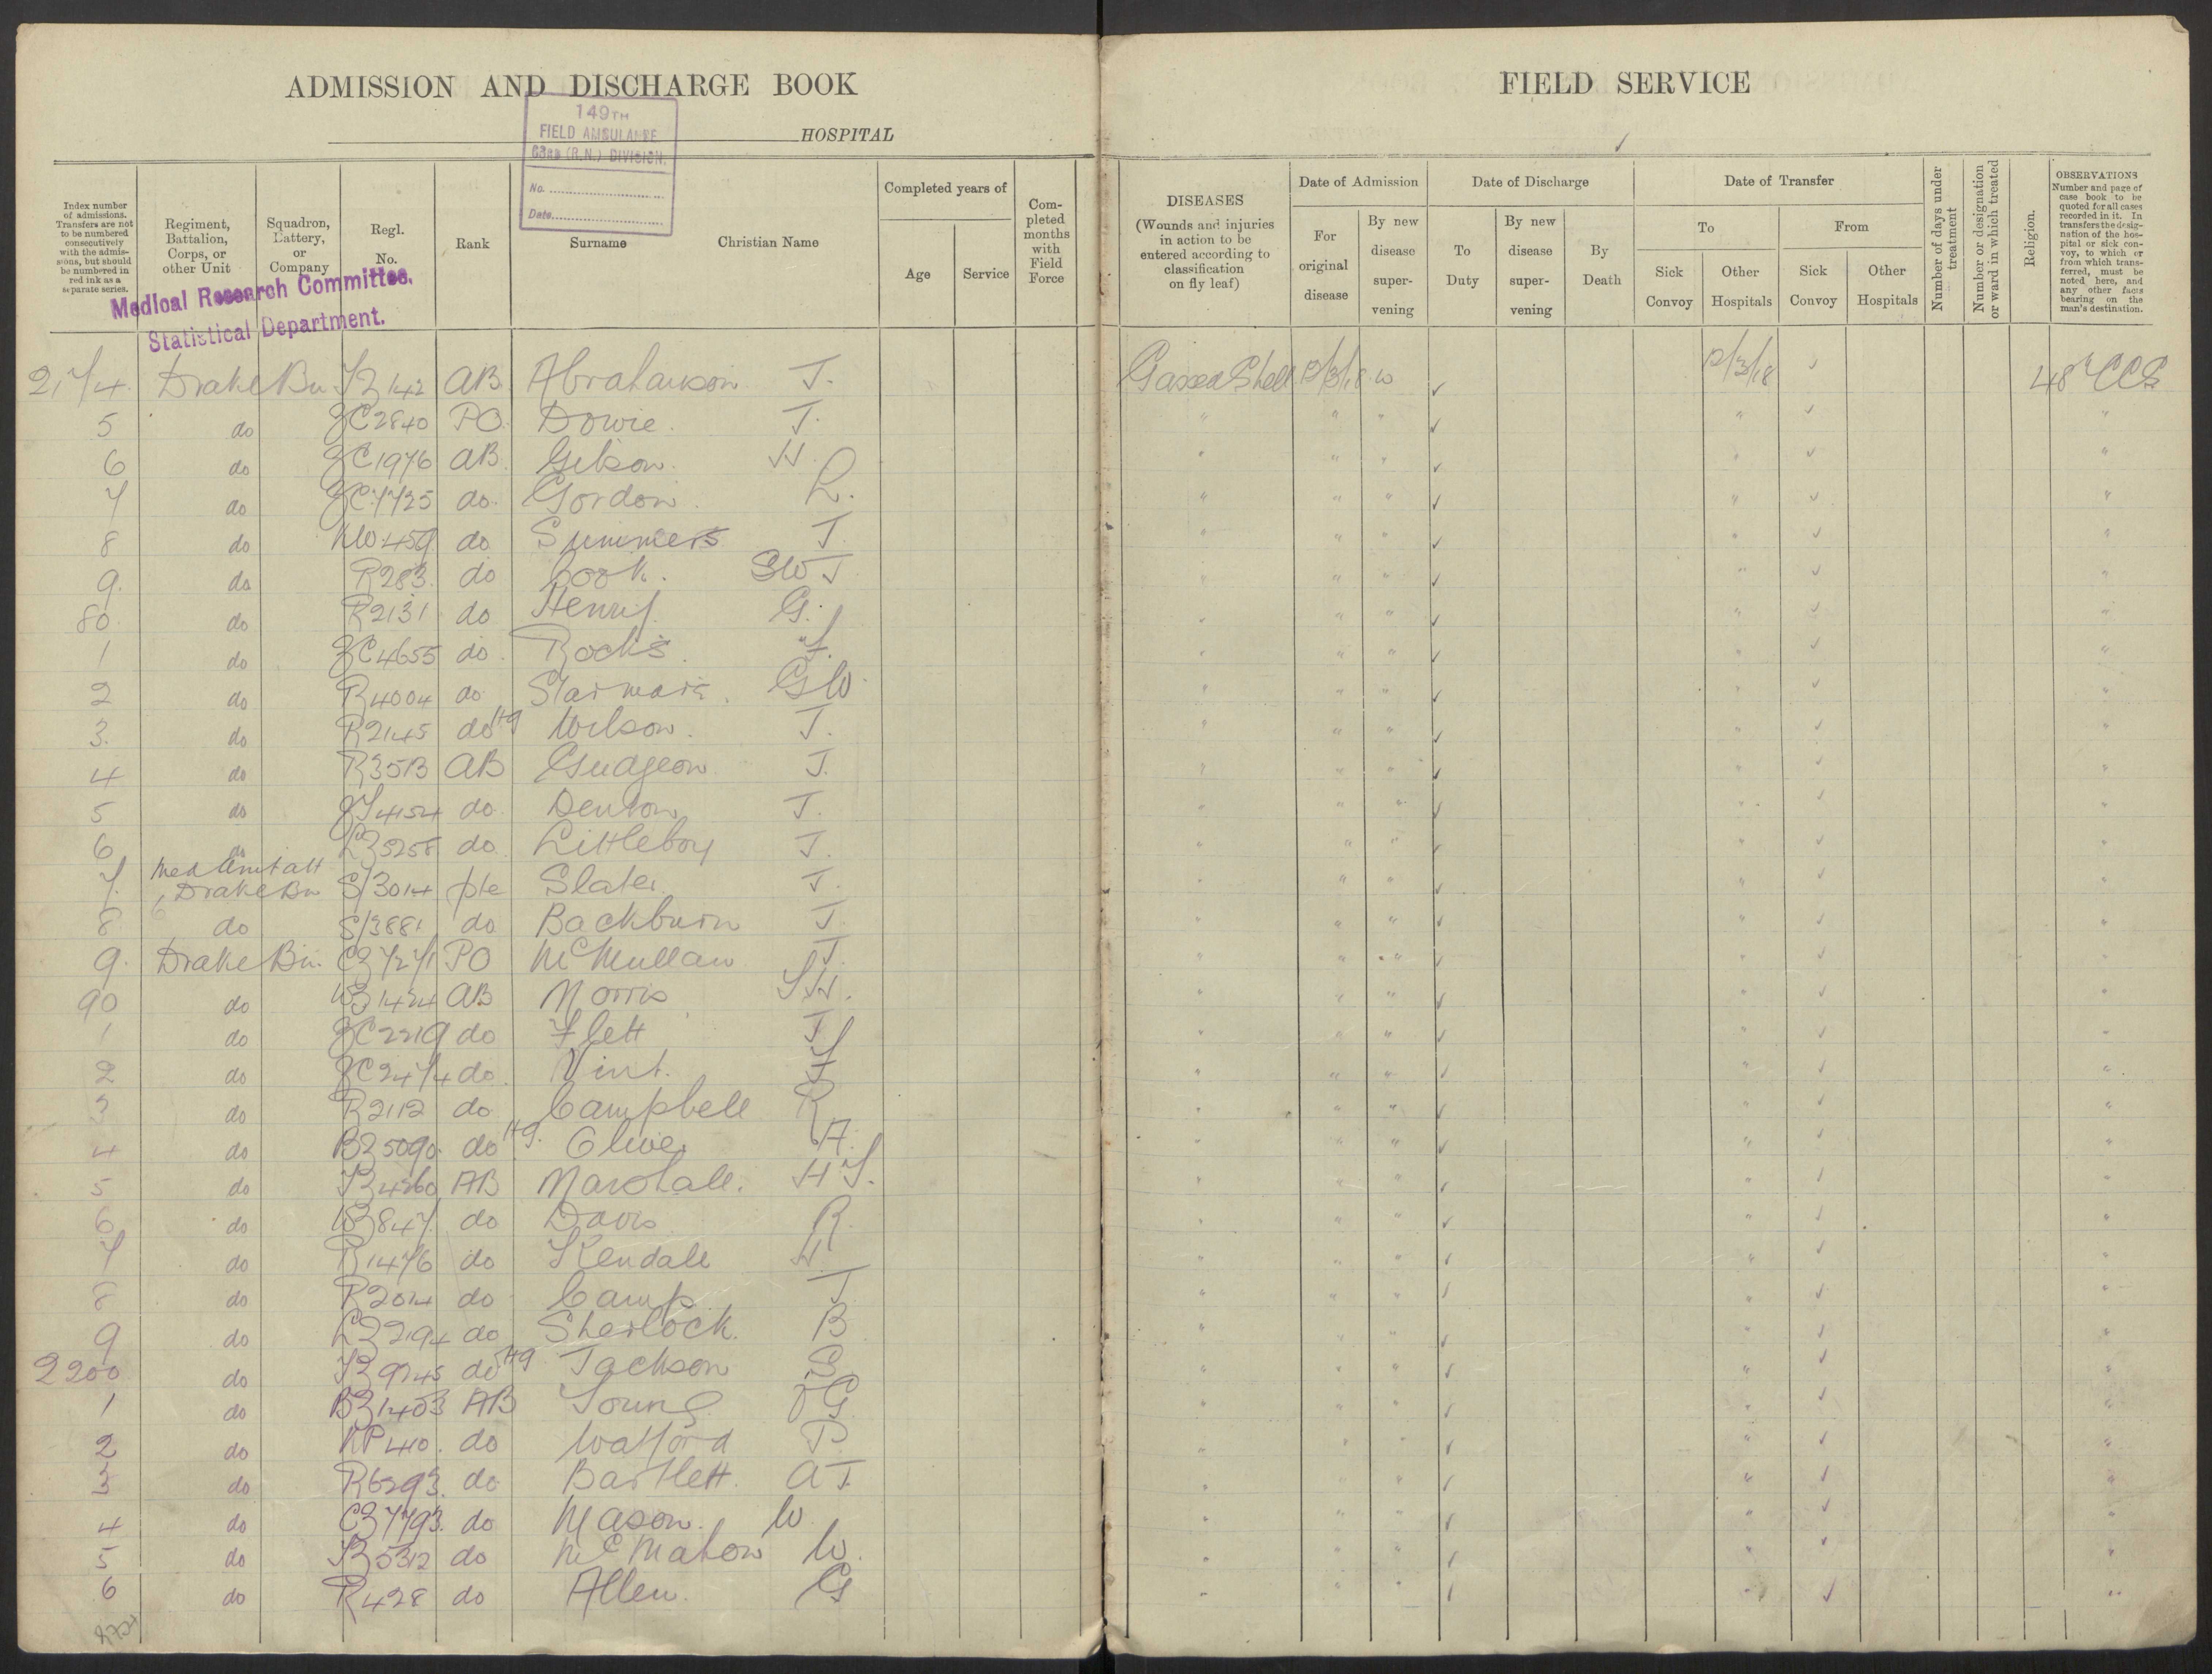 ADMISSION AND DISCHARGE BOOK
149TH
FIELD AMBULANCE
63RD (R.N.) DIVISION.
No.
Date
HOSPITAL
FIELD SERVICE
Index number of admissions. Transfers are not to be numbered consecutively with the admissions, but should be numbered in red ink as a separate series.
Regiment, Battalion, Corps, or other Unit
Squadron, Battery, or Company
Regl. No.
Rank
Surname
Christian Name
Completed years of
Age
Service
Completed months with Field Force
DISEASES
(Wounds and injuries in action to be entered according to classification on fly leaf)
Date of Admission
For original disease
By new disease supervening
Date of Discharge
To Duty
By new disease supervening
By Death
Date of Transfer
To
Sick Convoy
Other Hospitals
From
Sick Convoy
Other Hospitals
Number of days under treatment
Number or designation or ward in which treated
Religion.
OBSERVATIONS
Number and page of case book to be quoted for all cases recorded in it. In transfers the designation of the hospital or sick convoy, to which or from which transferred, must be noted here, and any other facts bearing on the man's destination.
Medical Research Committee.
Statistical Department.
2174 Drake Bn 142 AB Abrahamson T. Gassed Shell 12/3/18 12/3/18 48 CCS
5 do ZC2840 PO Dowie. T. " " " " "
6 do ZC1976 AB. Gibson. W. " " " " "
7 do ZC7725 do. Gordon. L. " " " " "
8 do KW459 do Summers T. " " " " "
9. do R283. do Cook. SWT " " " " "
80 do R2131 do Henry G. " " " " "
1 do ZC4655 do Rocks. " " " " "
2 do R4004 do GW. " " " " "
3. do R2145 do Wilson. T. " " " " "
4 do R3513 AB Gudgeon. J. " " " " "
5 do 4154 do. Denton T. " " " " "
6 do LZ5258 do. Littleboy J. " " " " "
7. Med Unit att Drake Bn S/3014 pte Slater J. " " " " "
8 do S/3881 do Backburn J. " " " " "
9. Drake Bn. CZ7271 PO McMullan J. " " " " "
90 do WZ1424 AB Norris " " " " "
1 do ZC2219 do Flett J " " " " "
2 do ZC2474 do. Vint. " " " " "
3 do R2112 do Campbell R " " " " "
4 do BZ5090. do Oliver A. " " " " "
5 do 4260 AB Marshall. " " " " "
6 do WZ847. do Davis R. " " " " "
7 do R1476 do Kendall W. " " " " "
8 do R2014 do Camp J " " " " "
9 do LZ2194 do Sherlock. B " " " " "
2200 do do Jackson S " " " " "
1 do BZ1403 AB Young G " " " " "
2 do KP410. do Watford P. " " " " "
3 do R6293. do Bartlett. A T. " " " " "
4 do CZ7793. do Mason. W. " " " " "
5 do 5312 do McMahon W. " " " " "
6 do R428 do Allen. G " " " " "